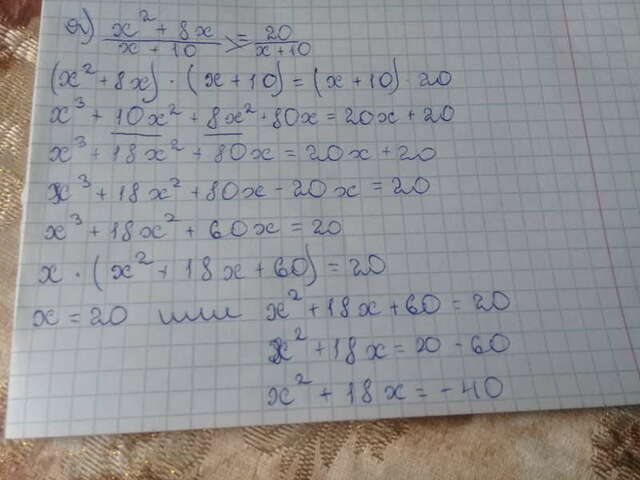 а) x² + 8x / x + 10 = 20 / x + 10
(x² + 8x) · (x + 10) = (x + 10) 20
x³ + 10x² + 8x² + 80x = 20x + 20
x³ + 18x² + 80x = 20x + 20
x³ + 18x² + 80x - 20x = 20
x³ + 18x² + 60x = 20
x · (x² + 18x + 60) = 20
x = 20 или x² + 18x + 60 = 20
x² + 18x = 20 - 60
x² + 18x = -40